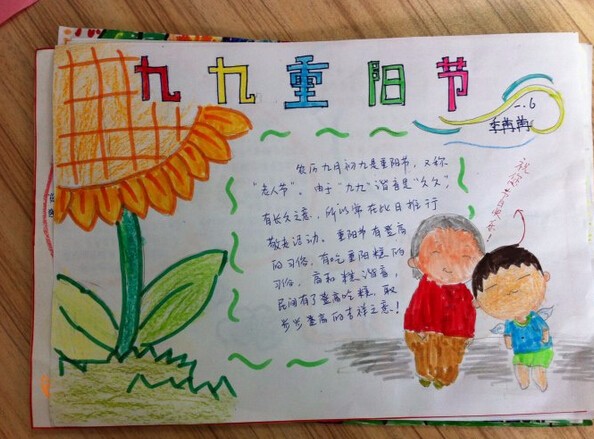 九九重阳节
一.6
李苒苒
祝你节日快乐!
农历九月初九是重阳节,又称
"老人节"。由于"九九"谐音是"久久",
有长久之意,所以常在此日推行
敬老活动。重阳节有登高
的习俗,有吃重阳糕的
习俗,高和糕谐音,
民间有了登高吃糕,取
步步登高的吉祥之意!